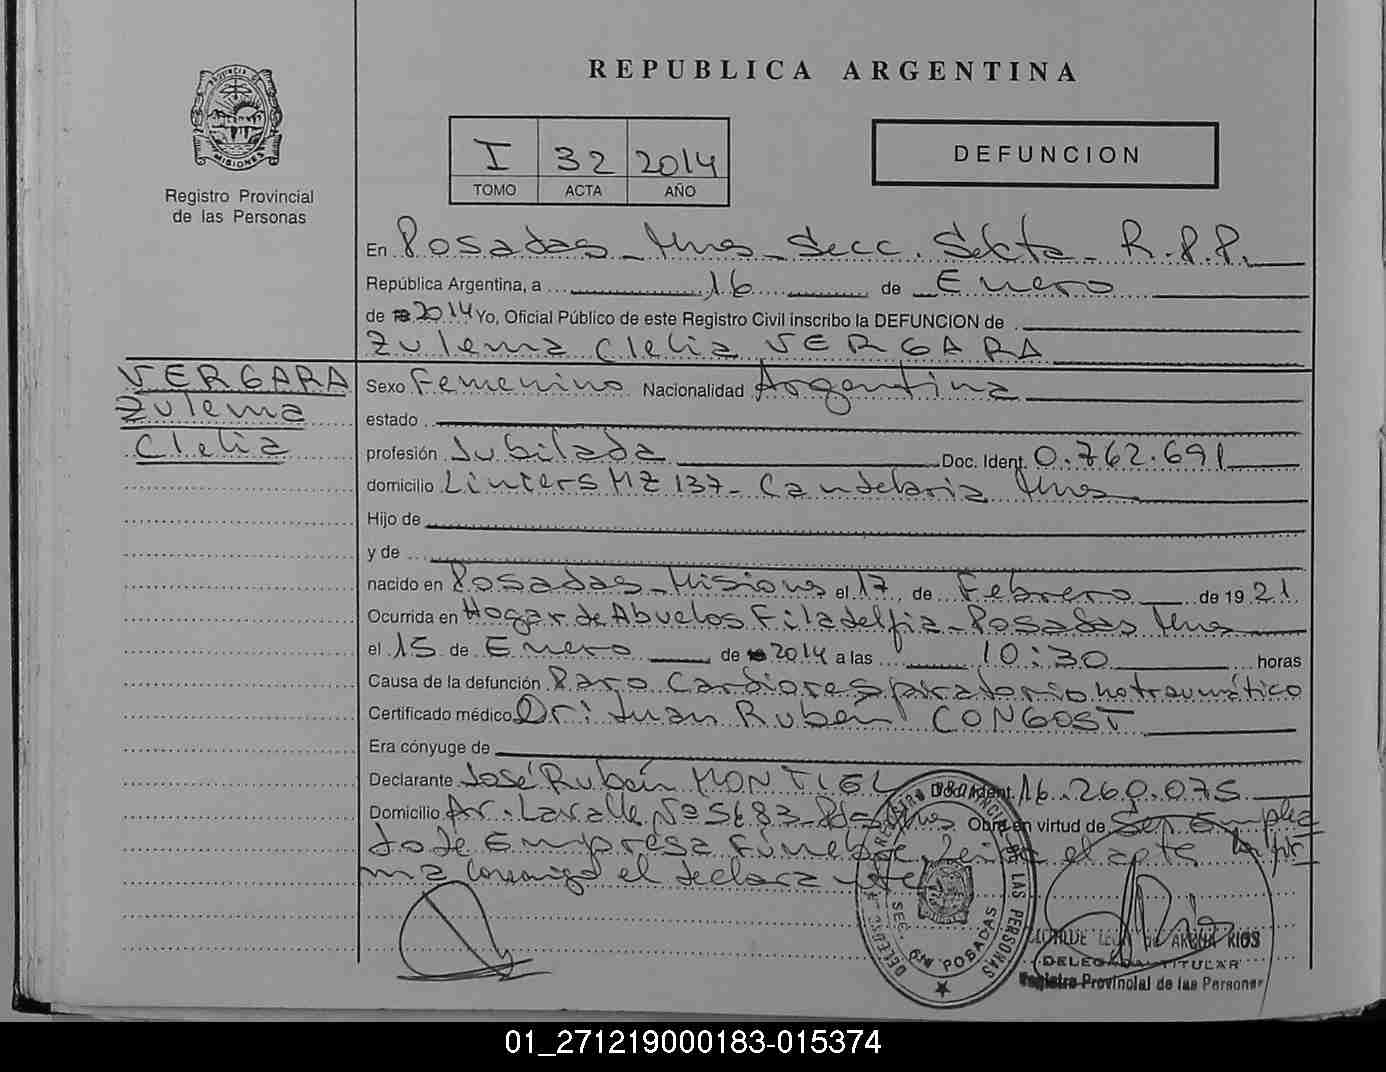 REPUBLICA ARGENTINA
PROVINCIA DE MISIONES
Registro Provincial
de las Personas
I 32 2014
TOMO ACTA AÑO
DEFUNCION
En Posadas - Mnes - Secc. Sexta - R.P.P.
República Argentina, a 16 de Enero
de 2014 Yo, Oficial Público de este Registro Civil inscribo la DEFUNCION de
Zulema Clelia VERGARA
VERGARA
Zulema
Clelia
Sexo Femenino Nacionalidad Argentina
estado
profesión Jubilada Doc. Ident. 0.762.691
domicilio Liniers MZ 137 - Candelaria Mnes
Hijo de
y de
nacido en Posadas - Misiones el 17 de Febrero de 1921
Ocurrida en Hogar de Abuelos Filadelfia - Posadas Mnes
el 15 de Enero de 2014 a las 10:30 horas
Causa de la defunción Paro Cardiorespiratorio no traumático
Certificado médico Dr: Juan Ruben CONGOST
Era cónyuge de
Declarante José Rubén MONTIEL Doc. Ident. 16.260.075
Domicilio Av. Lavalle Nº 5683 - Pdas Mnes Obra en virtud de Ser Emplea
do de Empresa Fúnebre. Leída el acta la fir
ma conmigo el declarante
REGISTRO PROVINCIAL DE LAS PERSONAS
SEC. 6ta POSADAS
RIOS
DELEGADA TITULAR
Registro Provincial de las Personas
01_271219000183-015374